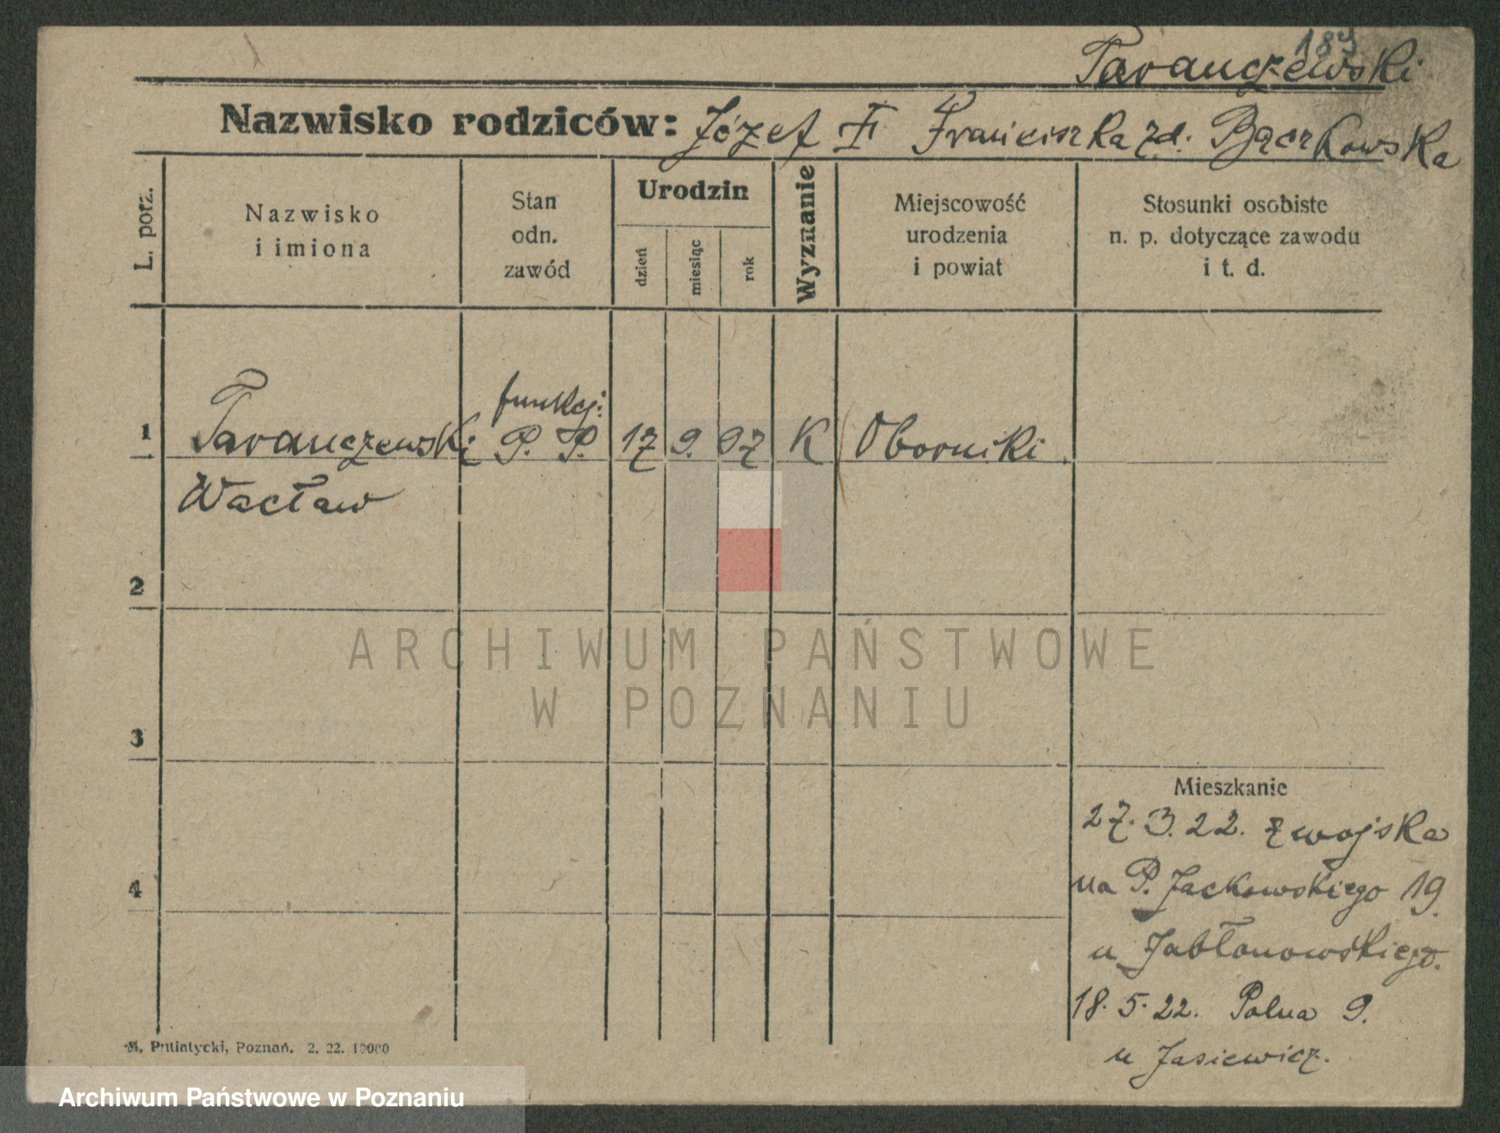 187
Taranczewski
Nazwisko rodziców: Józef i Franciszka zd. Bączkowska
L. porz.
Nazwisko i imiona
Stan odn. zawód
Urodzin
dzień
miesiąc
rok
Wyznanie
Miejscowość urodzenia i powiat
Stosunki osobiste n. p. dotyczące zawodu i t. d.
funkcj.
1 Taranczewski P. P. 17 9. 97 K Oborniki.
Wacław
2
ARCHIWUM PAŃSTWOWE
W POZNANIU
3
Mieszkanie
27. 3. 22. z wojska
4
na P. Jackowskiego 19.
u Jabłonowskiego.
18. 5. 22. Polna 9.
u Jasiewicz.
M. Putiatycki, Poznań. 2. 22. 10000
Archiwum Państwowe w Poznaniu